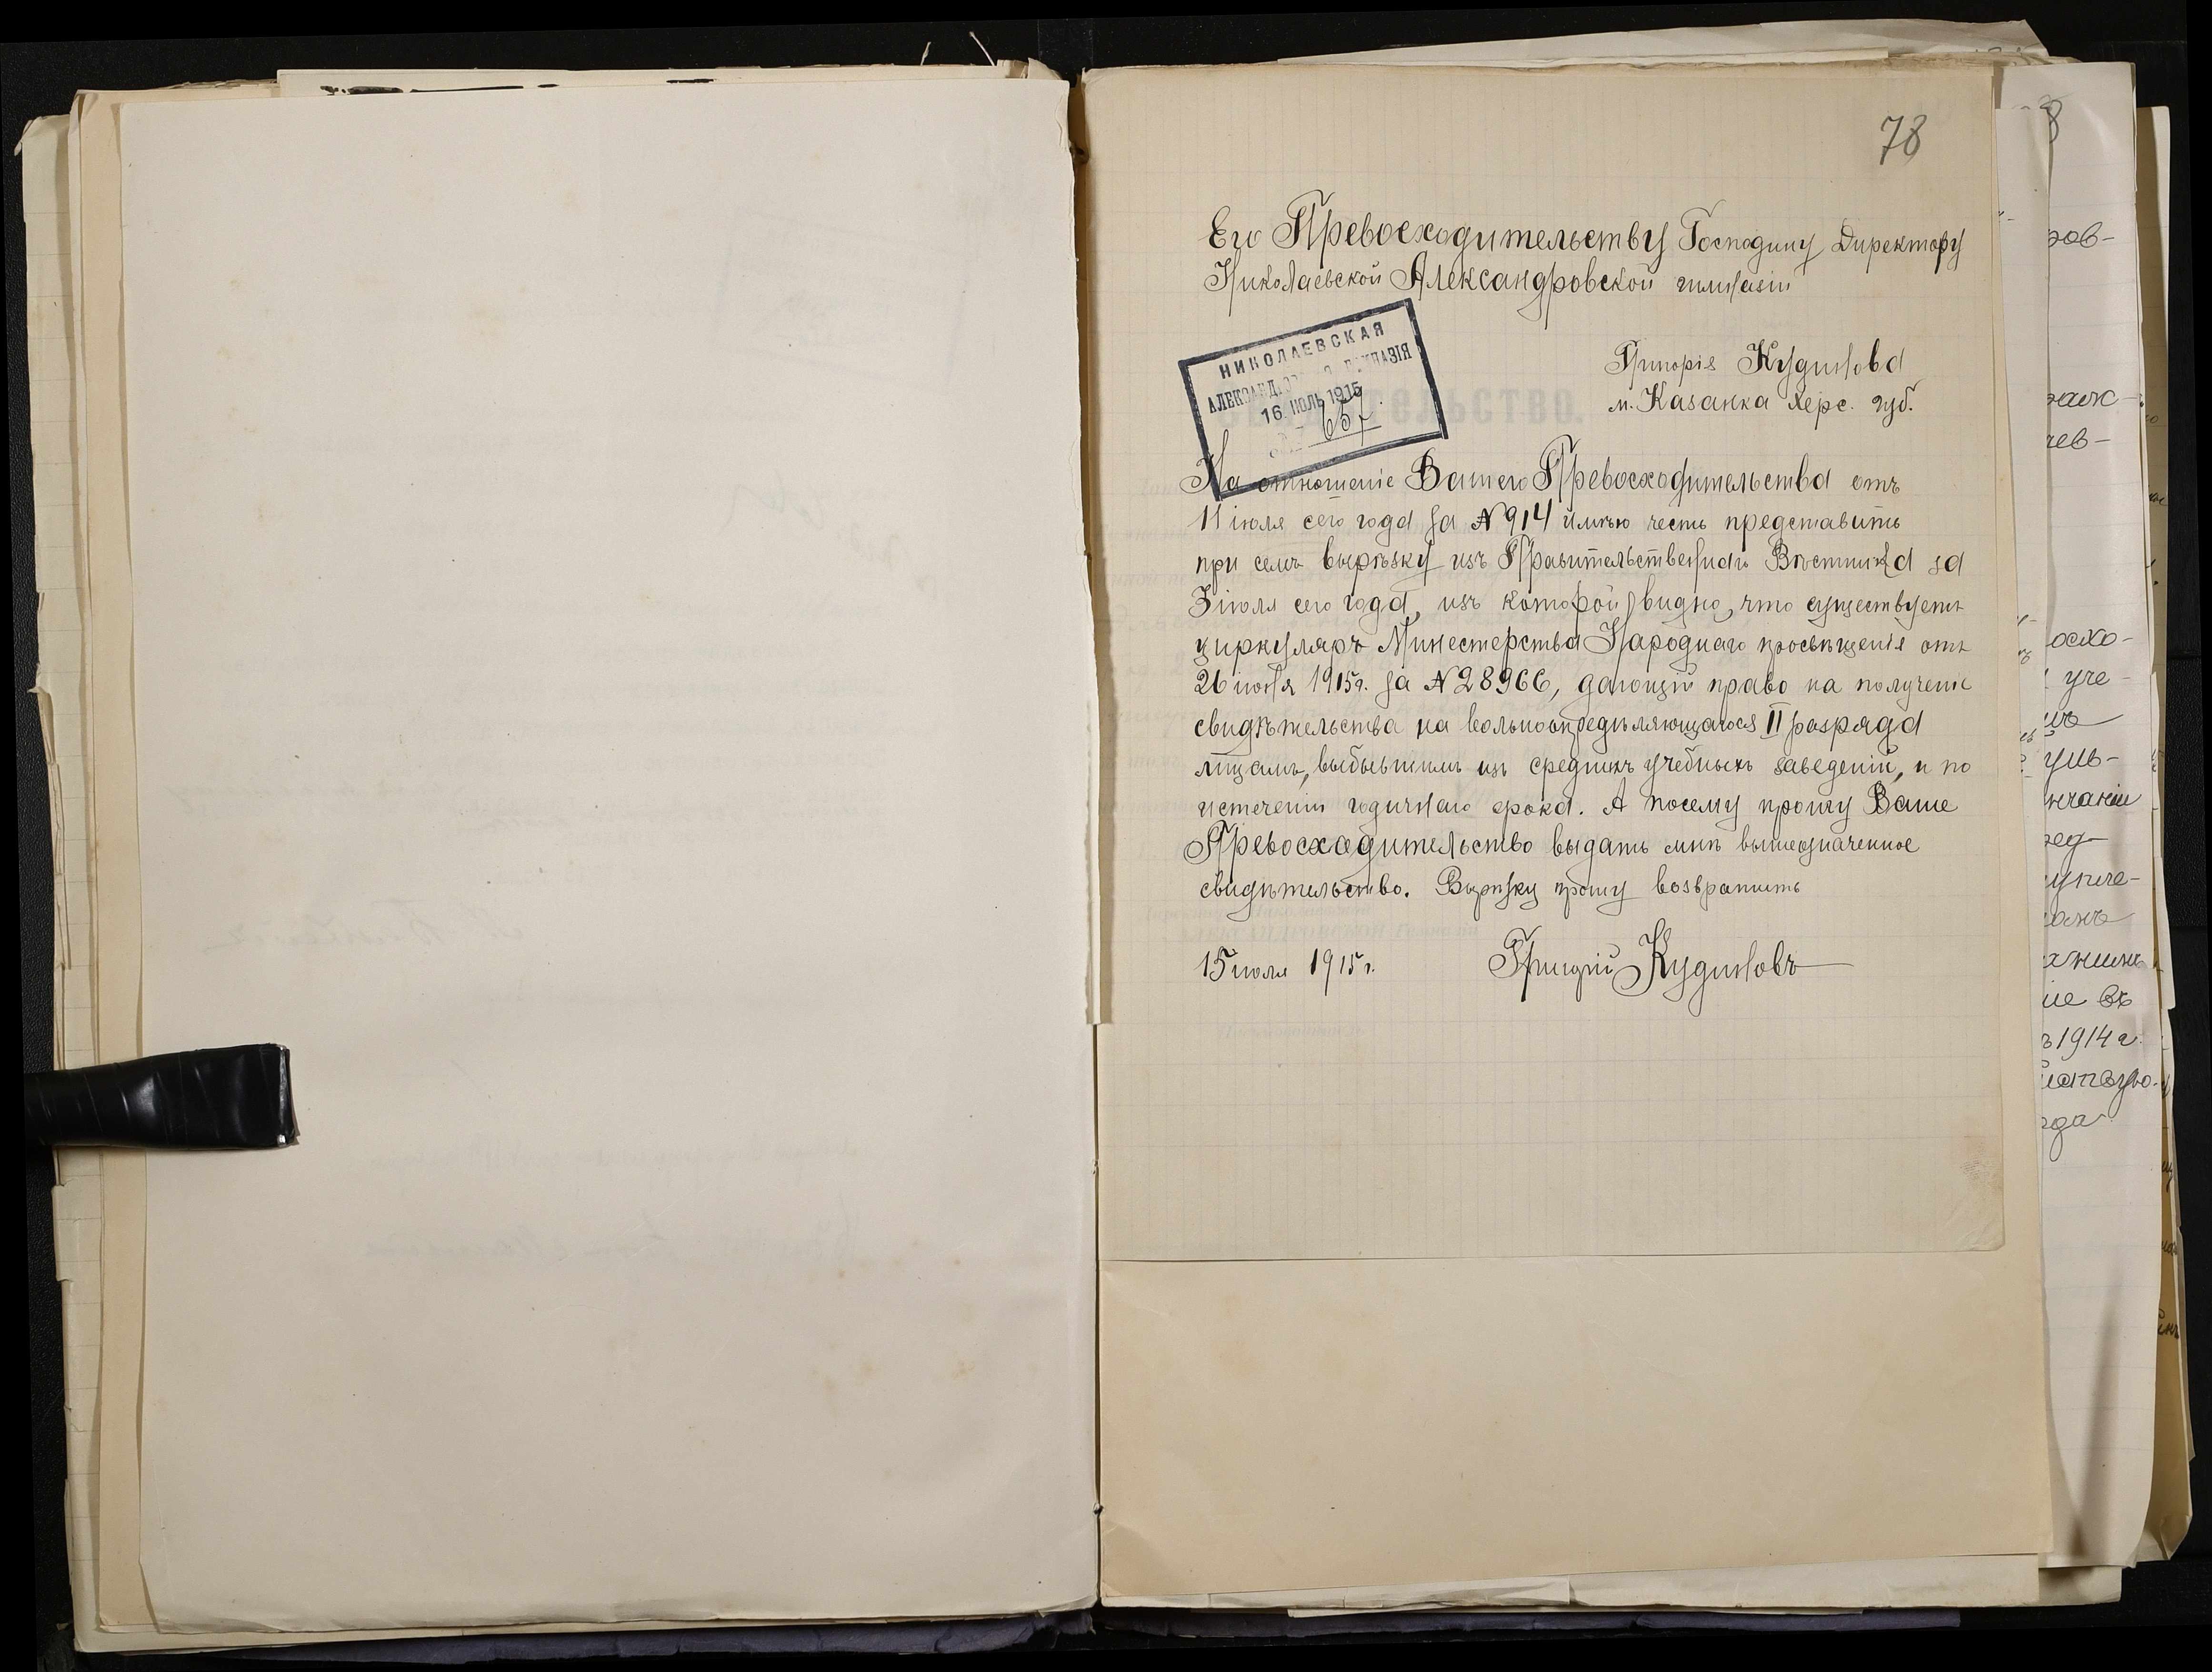 78
Его Превосходительству Господину Директору
Николаевской Александровской гимназіи
НИКОЛАЕВСКАЯ
16 ИЮЛЬ 1915
657
Григорія Кудинова
м. Казанка Херс. губ.
На отношеніе Вашего Превосходительства отъ
11 іюля сего года за № 914 имѣю честь представить
при семъ вырѣзку изъ Правительственнаго Вѣстника за
3 іюля сего года, изъ которой видно, что существуетъ
циркуляръ Минестерства Народнаго просвѣщенія отъ
26 іюня 1915г. за № 28966, дающій право на полученіе
свидѣтельства на вольноопредѣляющагося II разряда
лицамъ, выбывшимъ изъ среднихъ учебныхъ заведеній, и по
истеченіи годичнаго срока. А посему прошу Ваше
Превосходительство выдать мнѣ вышеозначенное
свидѣтельство. Вырѣзку прошу возвратить
15 июля 1915г. Григорій Кудиновъ